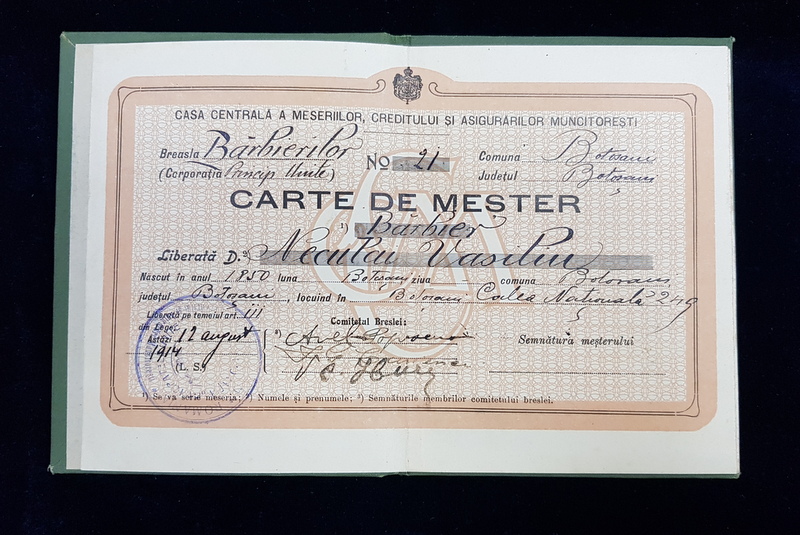 CASA CENTRALĂ A MESERIILOR, CREDITULUI ȘI ASIGURĂRILOR MUNCITOREȘTI
Breasla Bărbierilor No 21 Comuna Botoșani
(Corporația Princip. Unite) Județul Botoșani
CARTE DE MESTER
¹) Bărbier
Liberată D. Neculau Vasiliu
Născut în anul 1850 luna Botoșani ziua - comuna Botoșani
județul Botoșani, locuind în Botoșani Calea Națională 249
Liberată pe temeiul art. III
din Lege. Comitetul Breslei:
Astăzi 12 august
1914 Semnătura meșterului
(L. S.)
¹) Se va scrie meseria; ²) Numele și prenumele; ³) Semnăturile membrilor comitetului breslei.